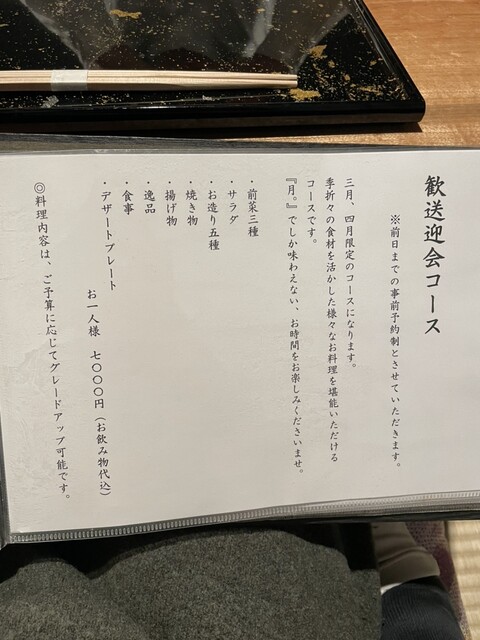 歓送迎会コース
※前日までの事前予約制とさせていただきます。
三月、四月限定のコースになります。
季折々の食材を活かした様々なお料理を堪能いただける
コースです。
『月。』でしか味わえない、お時間をお楽しみくださいませ。
・前菜三種
・サラダ
・お造り五種
・焼き物
・揚げ物
・逸品
・食事
・デザートプレート
お一人様 七〇〇〇円（お飲み物代込）
◎料理内容は、ご予算に応じてグレードアップ可能です。